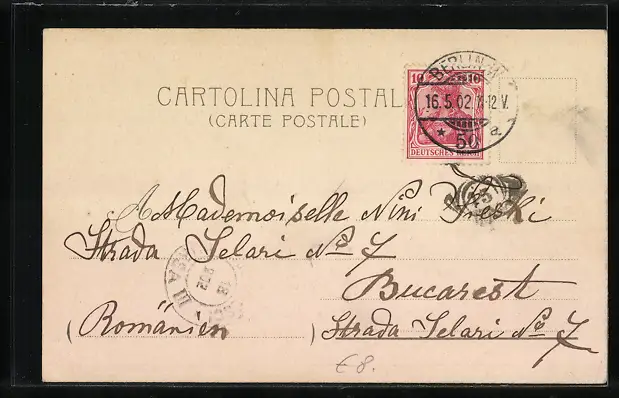 CARTOLINA POSTALE
(CARTE POSTALE)
10 10
DEUTSCHES REICH
BERLIN W.
16.5.02 11-12 V.
* 50 a
A Mademoiselle Nini
Strada Selari No 7
Bucarest
(Romänien) Strada Selari No 7
€ 8.